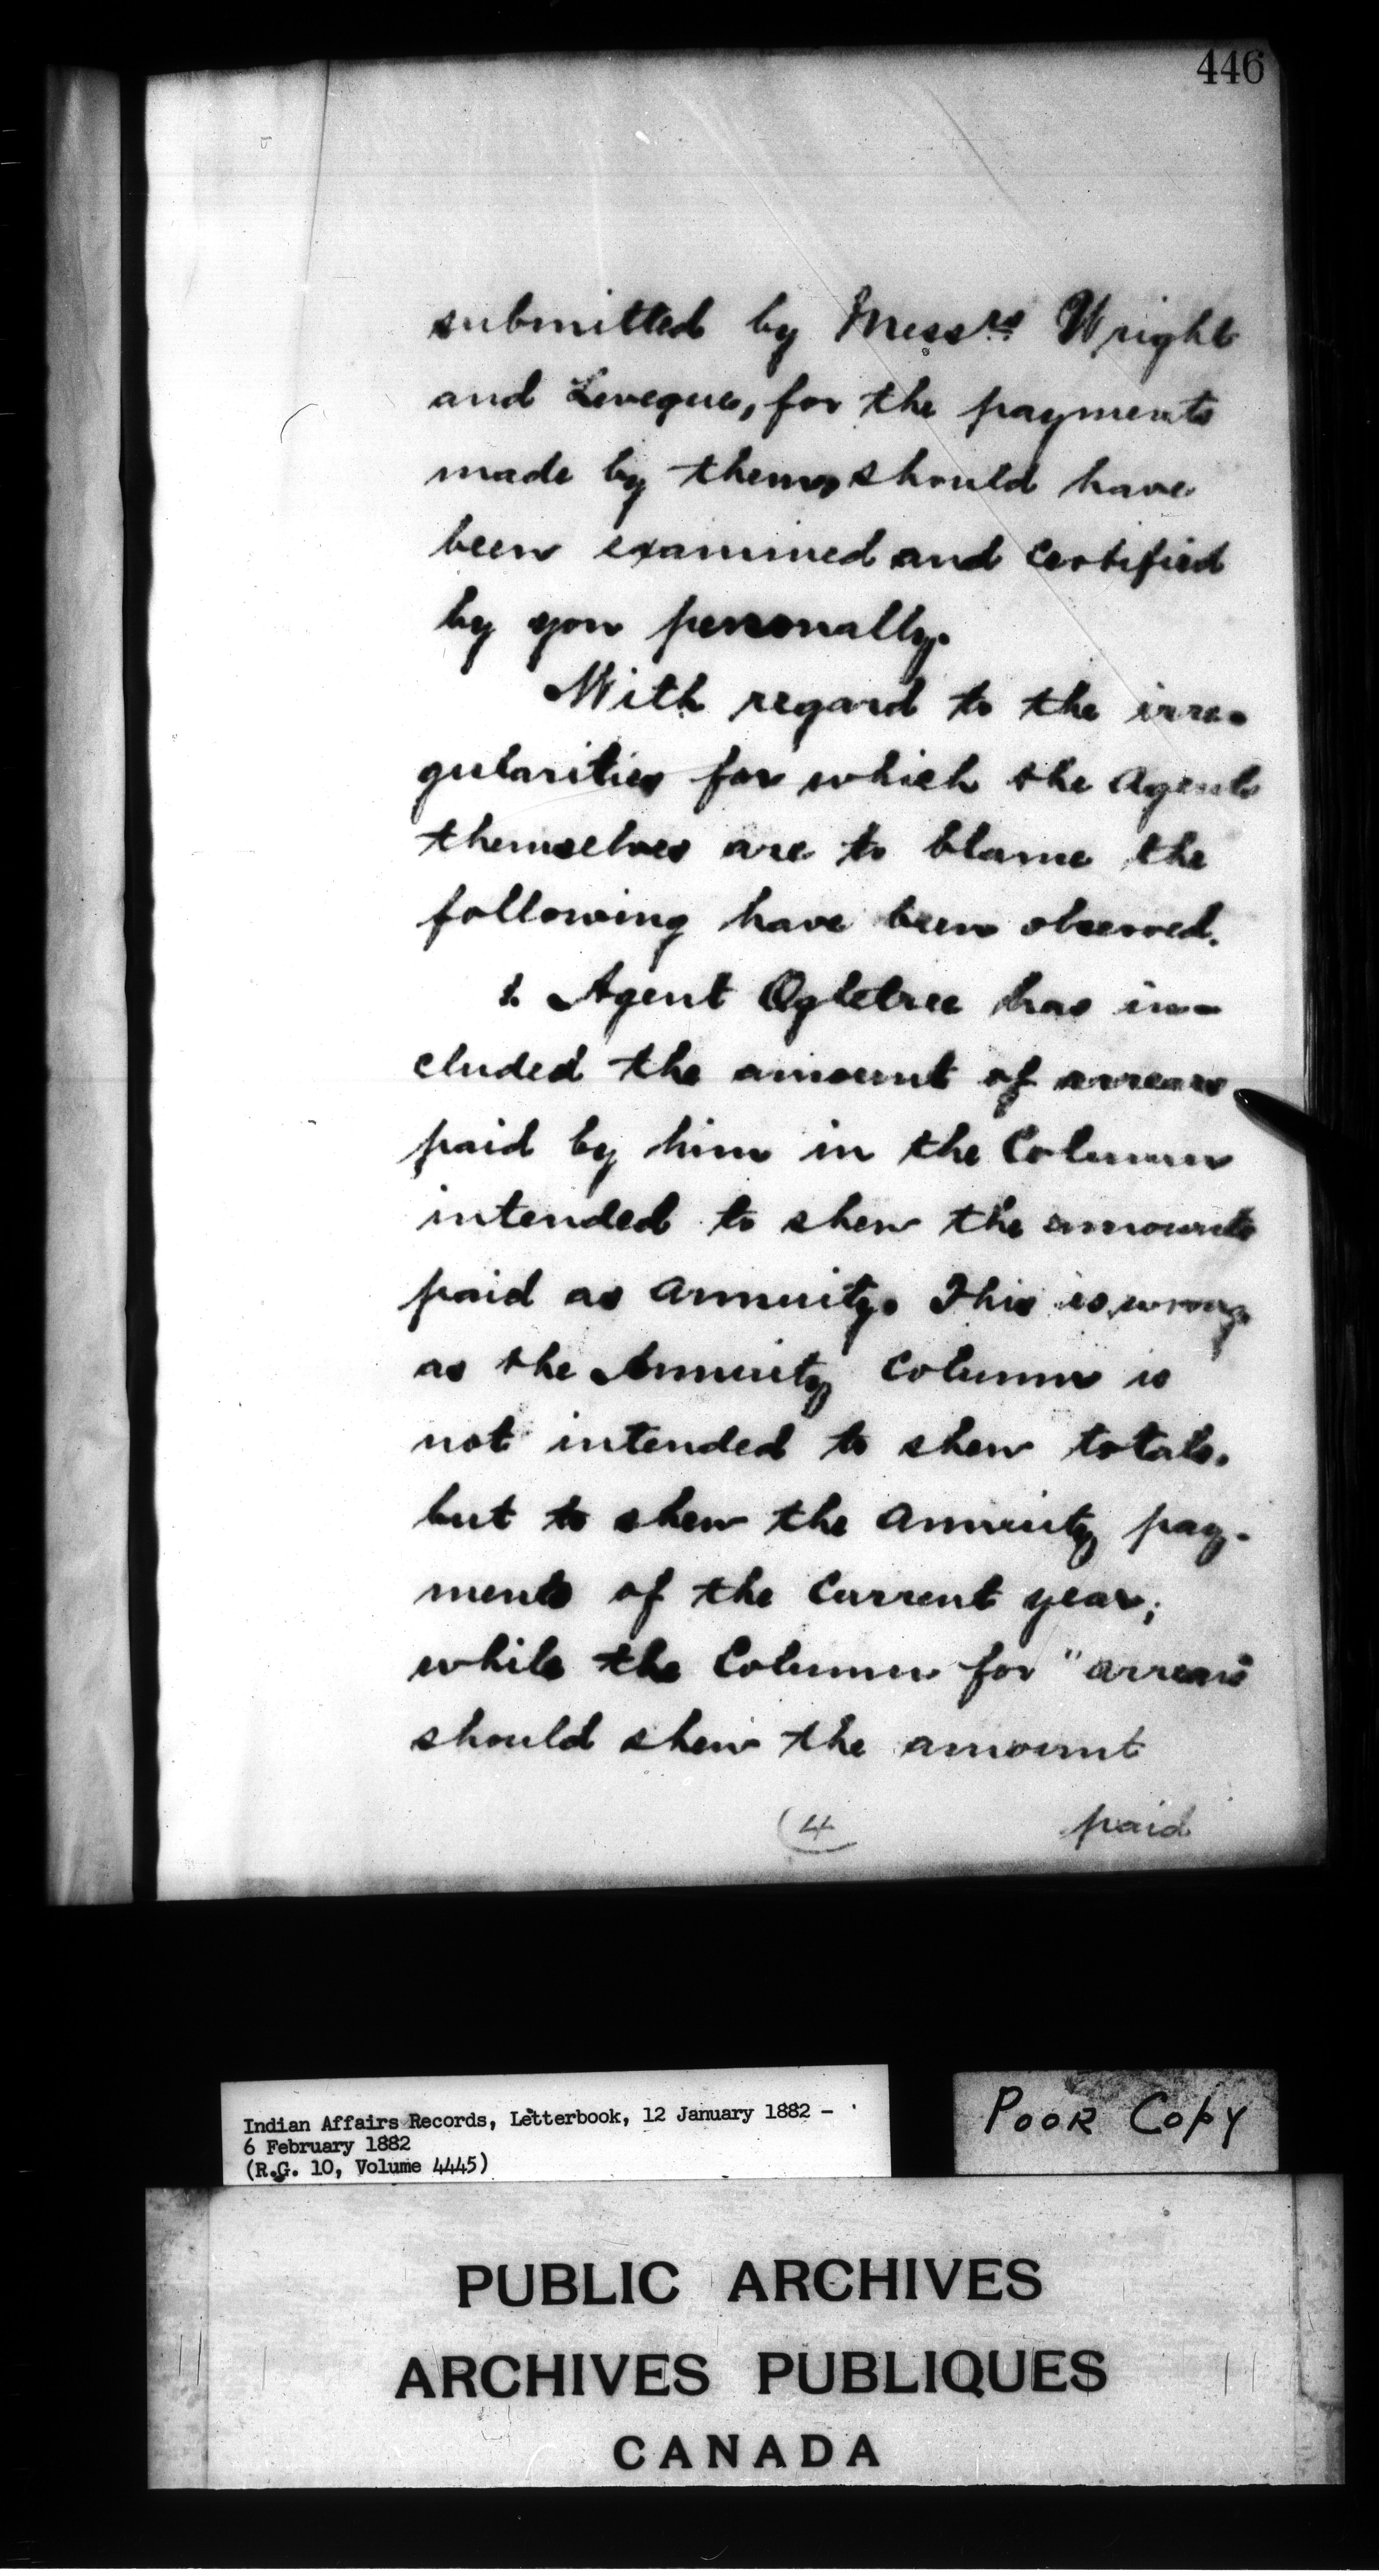 446
submitted by Messrs Wright
and Leveque, for the payments
made by them, should have
been examined and certified
by you personally.
With regard to the irre-
gularities for which the Agents
themselves are to blame the
following have been observed.
1. Agent Ogletree has in-
cluded the amount of arrears
paid by him in the Column
intended to shew the amounts
paid as annuity. This is wrong
as the Annuity Column is
not intended to shew totals.
but to shew the Annuity pay-
ments of the Current year;
while the Column for "arrears"
should shew the amount
(4 paid
Indian Affairs Records, Letterbook, 12 January 1882 -
6 February 1882
(R.G. 10, Volume 4445)
POOR COPY
PUBLIC ARCHIVES
ARCHIVES PUBLIQUES
CANADA